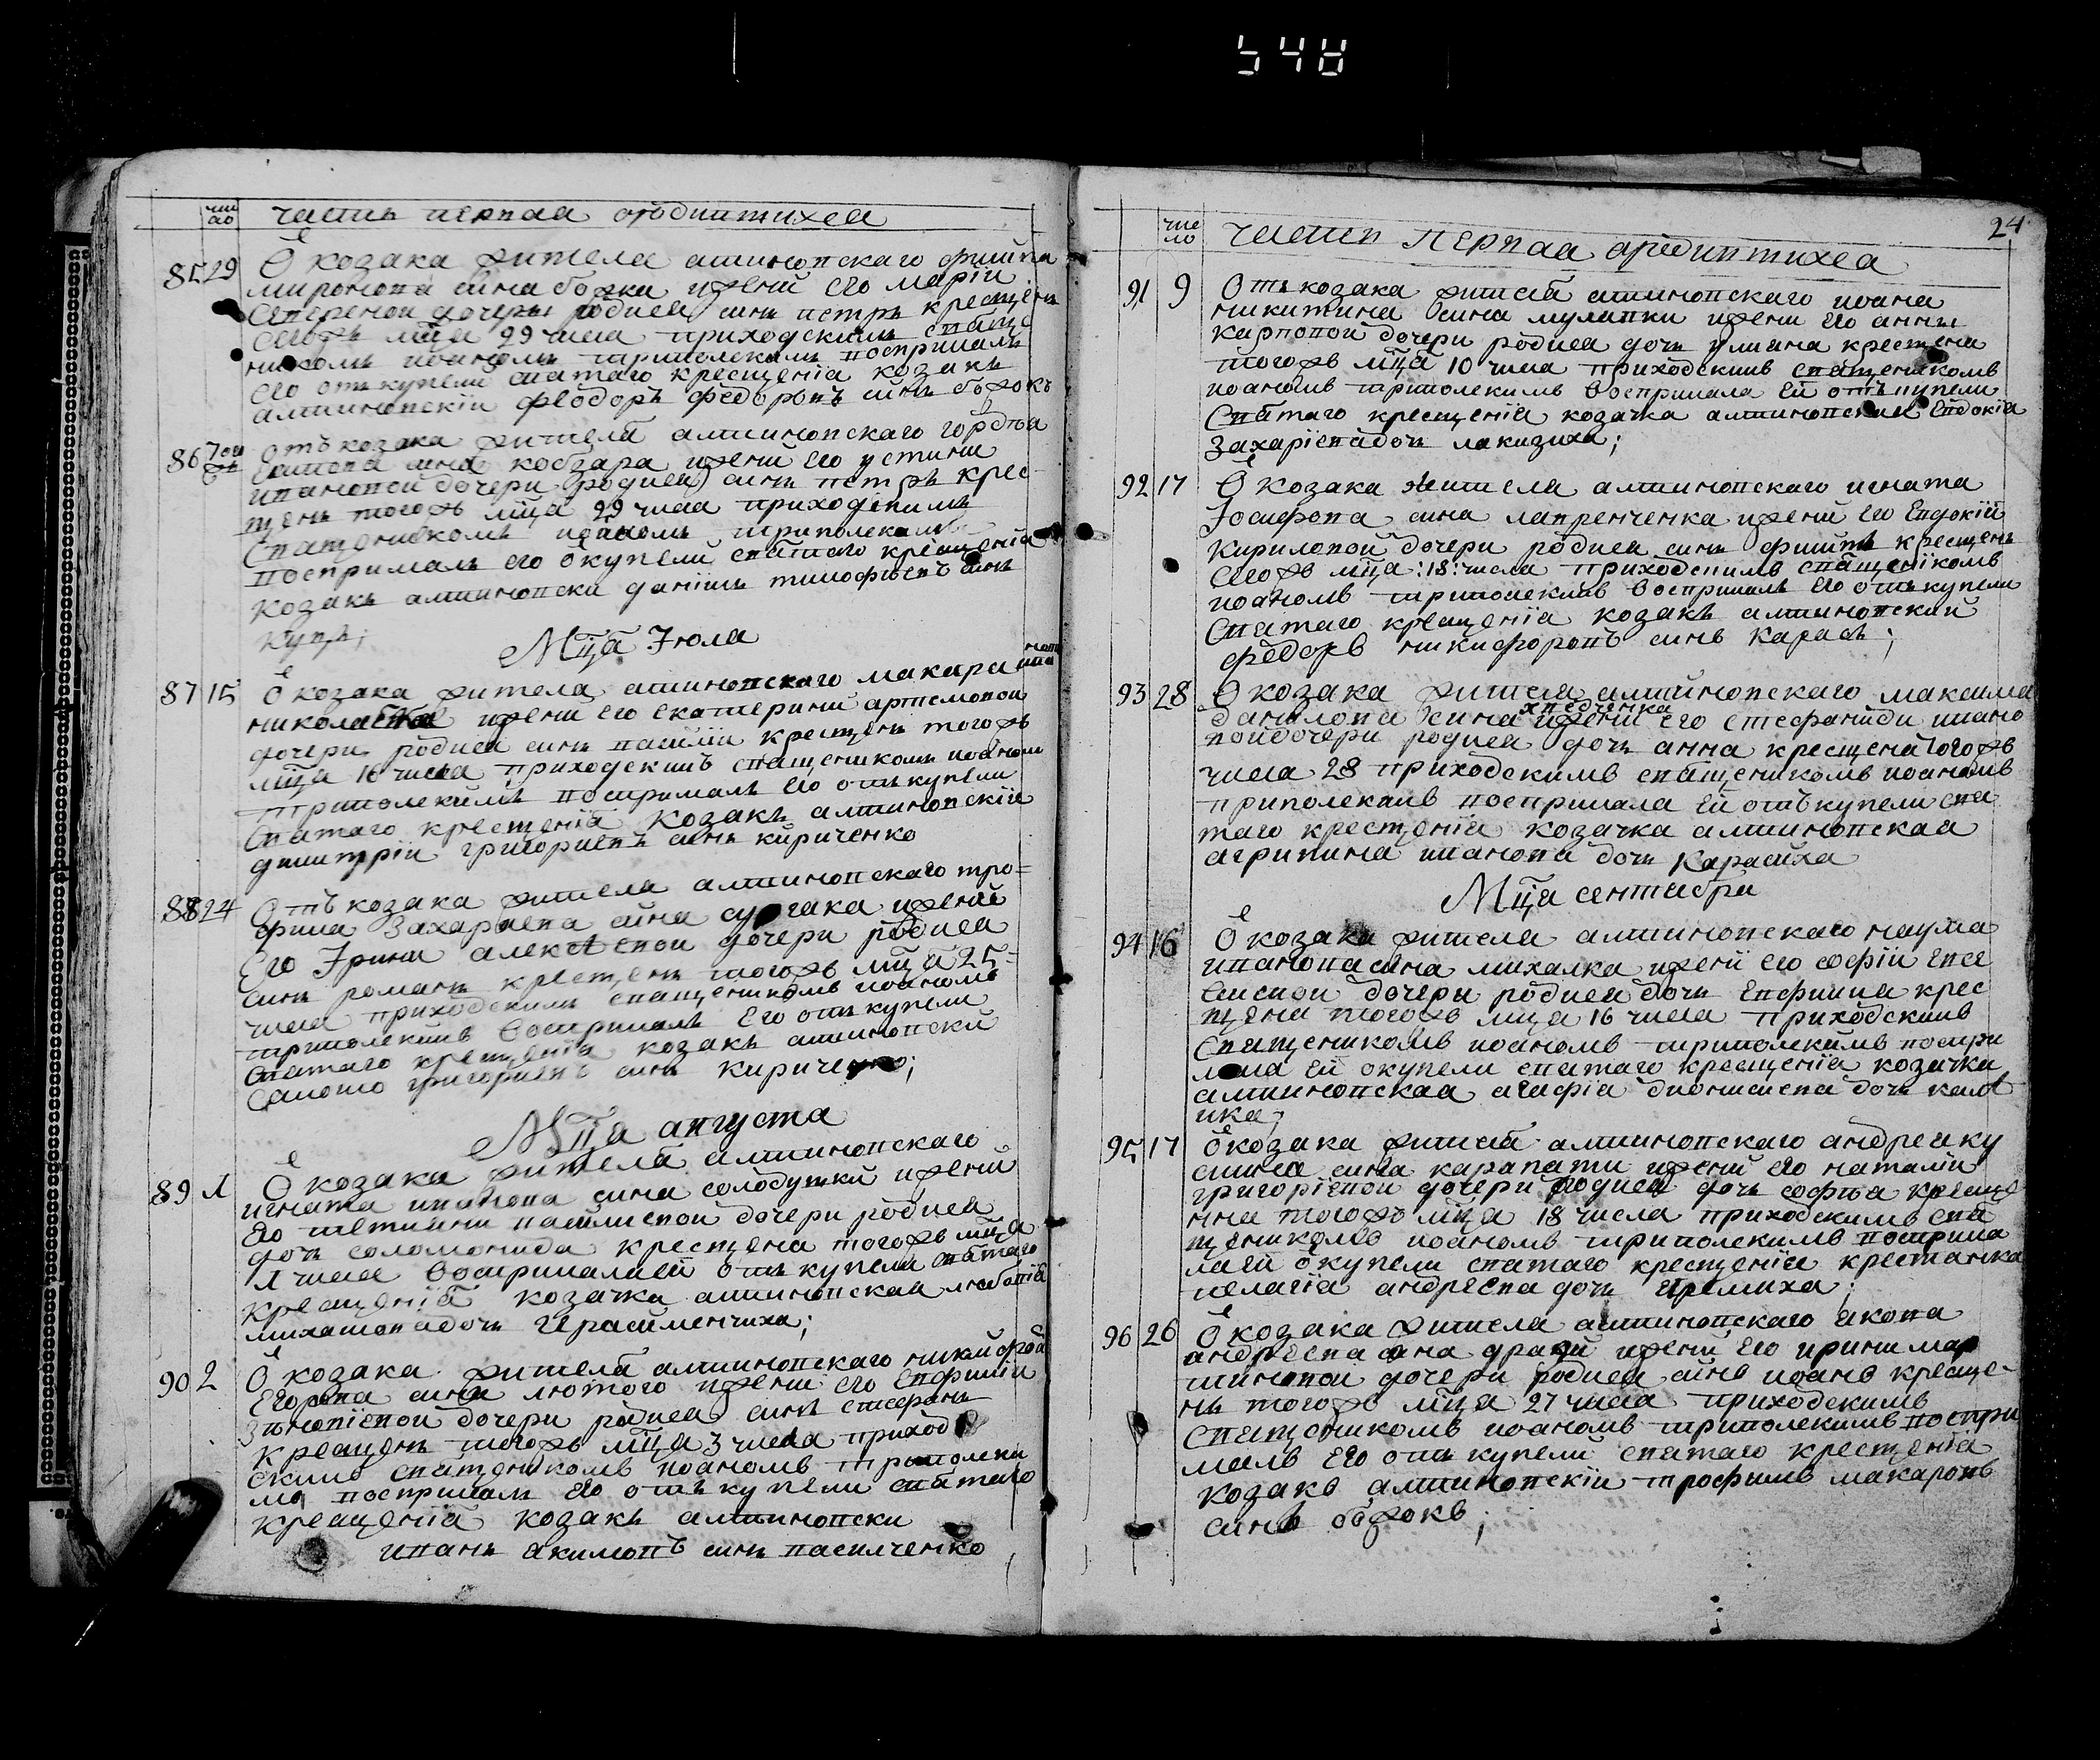 548
чис
ло
часть первая ородиптихсa
85 29 Ѿ козака жителя алтиновского филипа
миронова сина божка ижени его маріи
дочеры родися синь петръ крещень
тогожъ мца 29 числа приходскимъ свяще
никомъ иоаномъ триполскимъ восприималъ
его отъ купели святаго крещенія козакъ
алтиновскіи феодоръ федоровъ синъ божокъ
86 отъ козака жителя алтиновского гордѣя
сина кобзара ижени его устини
ивановой дочери родися синъ петръ крес
щенъ тогожъ мца 29 числа приходскимъ
священикомъ иоаномъ триполскимъ
восприималъ его ѿкупели святаго крещенія
козакъ алтиновски даніилъ тимофѣевъ синъ
купъ;
Мца Июля
87 15 Ѿ козака жителя алтиновского макара
ижени его екатерини артемовой
дочери родися синъ василіи крещенъ тогожъ
мца 16 числа приходскимъ священикомъ иоаномъ
триполскимъ восприималъ его отъ купели
святаго крещенія козакъ алтиновскіи
димитріи григориевъ синъ кириченко
88 24 Отъ козака жителя алтиновского тро=
фима Захариева сина сургака ижени
Его Ірини алексѣевои дочери родися
синъ романъ крещенъ тогожъ мца 25=
числа приходскимъ священикомъ иоаномъ
триполскимъ восприималъ Его отъ купели
святаго крещенія козакъ алтиновски
самоило григориевъ синъ кириченко;
Мца августа
89 1 Ѿ козака жителя алтиновского
игната иванова сина солодушки ижени
Его тетияни павлиевой дочери родися
дочь соломонида крещена тогожъ мца
1 числа восприималаеи отъ купели святаго
крещенія козачка алтиновская
михаиловадочъ Ираклменчиха;
90 2 Ѿ козака жителя алтиновского никифора
Егорова сина лютого ижени его Евфиміи
зѣновіевой дочери родися синъ стефанъ
крещенъ тогожъ мца 3 числа приход
скимъ священикомъ иоаномъ триполски
мъ восприималъ его отъ купели святаго
крещенія козакъ алтиновски
иванъ якимовъ синъ василченко
24
чис
ло
часть первая ородиптихса
91 9 Отъ козака жителя алтиновского иоана
никитина сина мулявки ижени его анны
карповой дочери родися дочъ улияна крещена
тогожъ мца 10 числа приходскимъ священикомъ
иоаномъ триполскимъ восприимала ей отъ купели
святаго крещенія козачка алтиновская Евдокія
захаріевадочъ лакизиха;
92 17 Ѿ козака жителя алтиновского игната
Іосифова сина лавренченка ижени его Евдокіи
кириловой дочери родися синъ филипъ крещенъ
тогожъ мца :18: числа приходскимъ священікомъ
иоаномъ триполскимъ восприималъ его отъ купели
святаго крещенія козакъ алтиновский
федоръ никифоровъ синъ карасъ;
93 28 Ѿ козака жителя алтиновского максима
данилова сина хведченка ижени его стефаниди ивано
войдочери родися дочъ анна крещена тогожъ
числа 28 приходскимъ священикомъ иоаномъ
триполскимъ восприимала ей отъ купели свя
таго крещенія козачка алтиновская
агрипина иванова дочъ карасиха
Мца сентября
94 16 Ѿ козака жителя алтиновского наума
ивановасина михалка ижени его софіи евсе
виевои дочери родися дочъ Евфимия крес
щена тогожъ мца 16 числа приходскимъ
священикомъ иоаномъ триполскимъ воспри
мала ей ѿкупели святаго крещенія козачка
алтиновская агафіа дионисиева дочъ
95 17 Ѿ козака жителя алтиновского андрея ку
сина карапати ижени его наталіи
григоріевой дочери родися дочъ софія креще
нна тогожъ мца 18 числа приходскимъ свя
щеникомъ иоаномъ триполскимъ восприма
лаей ѿкупели святаго крещенія крестянка
пелагіа андреева дочъ Яремиха;
96 26 Ѿ козака жителя алтиновского якова
андреева сина ижени его ирини мар
тиновой дочери родися синъ иоанъ креще-
нъ тогожъ мца 27 числа приходскимъ
священикомъ иоаномъ триполскимъ воспри
малъ его отъ купели святаго крещенія
козакъ алтиновскіи трофимъ макаровъ
синъ божокъ;